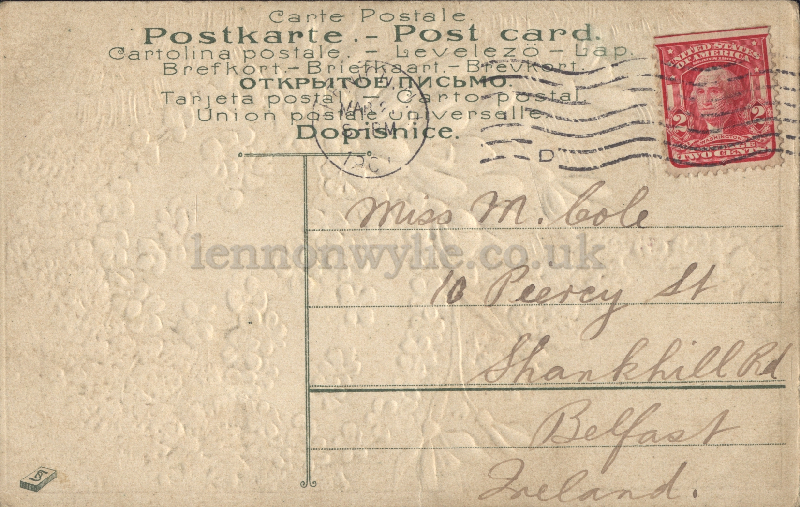 Carte Postale.
Postkarte. - Post card.
Cartolina postale. - Levelező - Lap.
Brefkort - Briefkaart - Brevkort.
ОТКРЫТОЕ ПИСЬМО.
Tarjeta postal - Carto postal
Union postale universelle.
Dopisnice.
UNITED STATES
OF AMERICA
2 2
TWO CENTS
D
Miss M. Cole
lennonwylie.co.uk
10 Peercy St
Shankhill Rd
Belfast
Ireland.